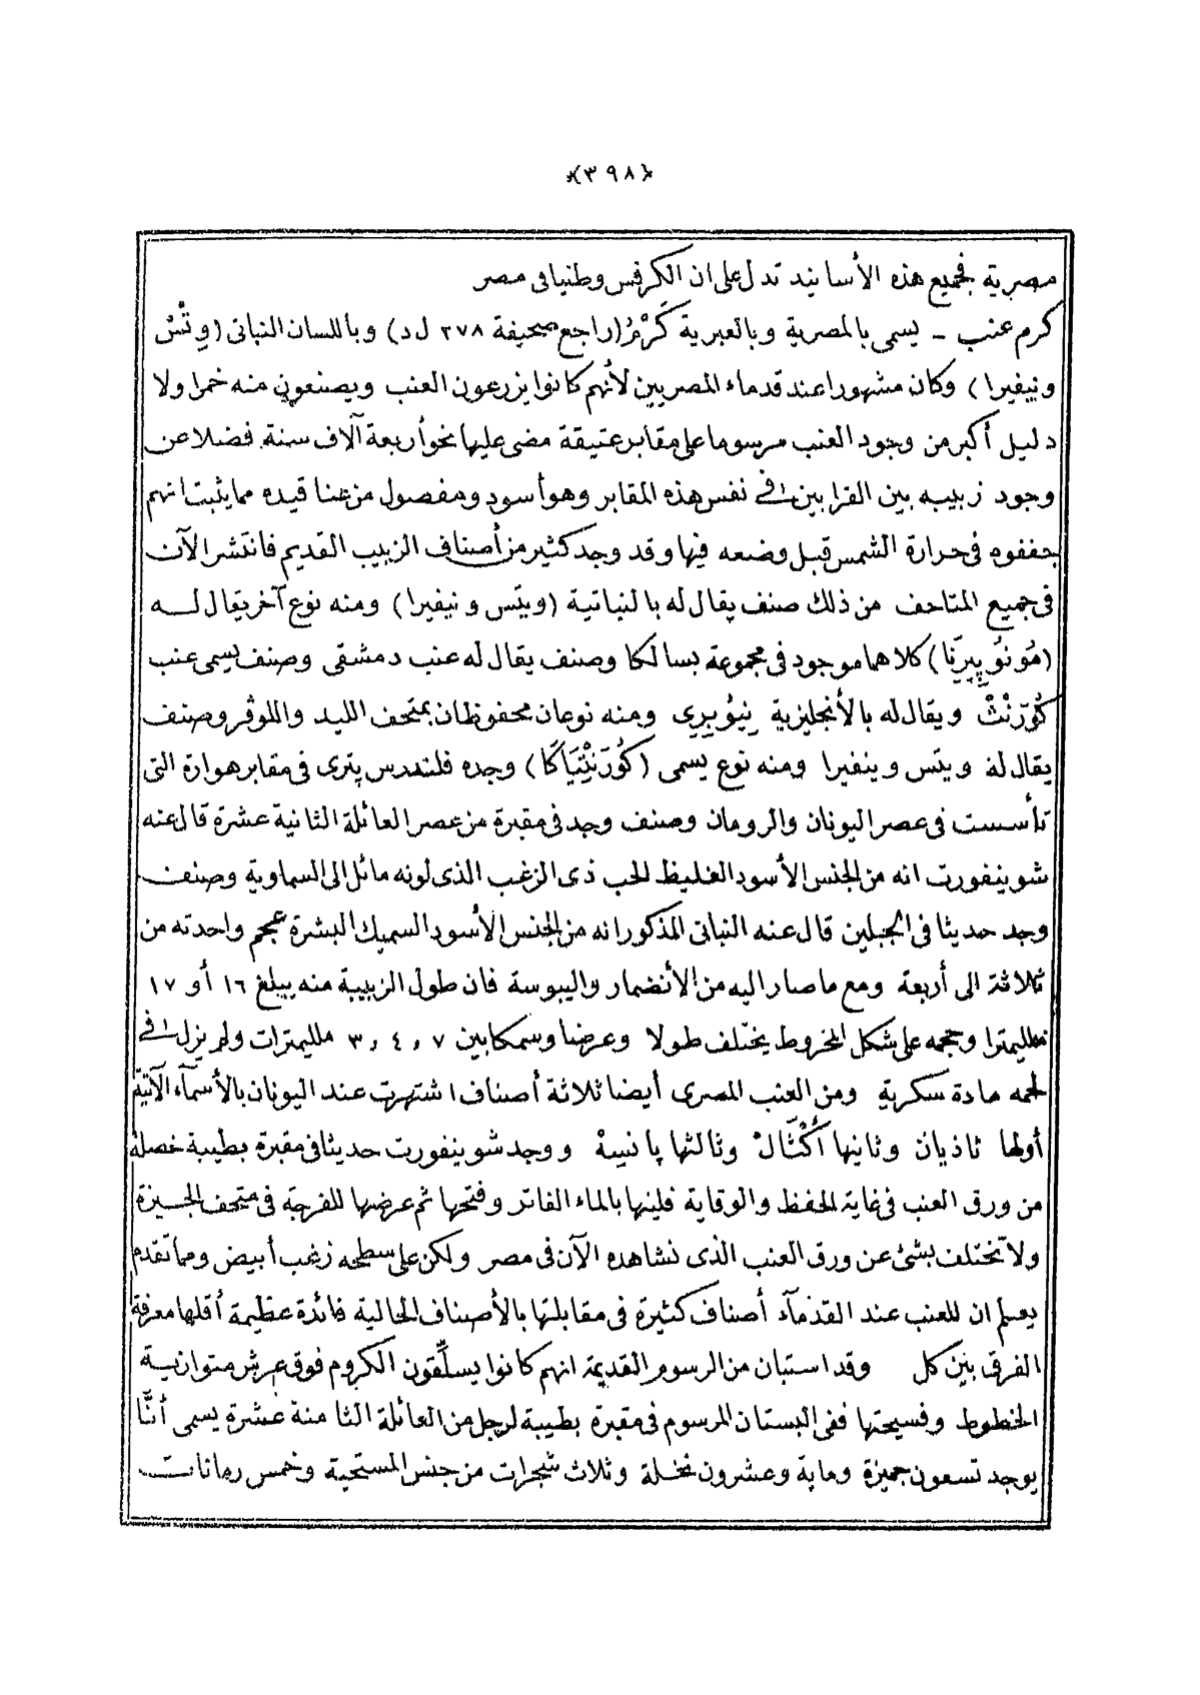 ﴿٣٩٨﴾
مصرية فجميع هذه الأسانيد تدل على ان الكرفس وطنيا فى مصر
كرم عنب - يسمى بالمصرية وبالعبرية كَرْمُ (راجع صحيفة ٢٧٨ ل د) وباللسان النباتى (وِتْسْ
ونيفيرا) وكان مشهورا عند قدماء المصريين لأنهم كانوا يزرعون العنب ويصنعون منه خمرا ولا
دليل أكبر من وجود العنب مرسوما على مقابر عتيقة مضى عليها نحو أربعة آلاف سنة فضلا عن
وجود زبيبه بين القرابين فى نفس هذه المقابر وهو أسود ومفصول من عناقيده مما يثبت انهم
جففوه فى حرارة الشمس قبل وضعه فيها وقد وجد كثير من أصناف الزبيب القديم فانتشر الآن
فى جميع المتاحف من ذلك صنف يقال له بالنباتية (ويتس ونيفيرا) ومنه نوع آخر يقال له
(مُونُو پيرِنَا) كلاهما موجود فى مجموعة بسالكا وصنف يقال له عنب دمشقى وصنف يسمى عنب
كُورَنْثْ ويقال له بالأنجليزية نِيُوبِرِى ومنه نوعان محفوظان بمتحف الليد واللوفر وصنف
يقال له ويتس وينفيرا ومنه نوع يسمى (كُورَنْتِيَاكَا) وجده فلندرس پترى فى مقابر هوارة التى
تأسست فى عصر اليونان والرومان وصنف وجد فى مقبرة من عصر العائلة الثانية عشرة قال عنه
شوينفورت انه من الجنس الأسود الغليظ الحب ذى الزغب الذى لونه مائل الى السماوية وصنف
وجد حديثا فى الجبلين قال عنه النباتى المذكور انه من الجنس الأسود السميك البشرة عجم واحدته من
ثلاثة الى أربعة ومع ما صار اليه من الأنضمار واليبوسة فان طول الزبيبة منه يبلغ ١٦ أو ١٧
ملليمترا وحجمه على شكل المخروط يختلف طولا وعرضا وسمكا بين ٧ , ٤ , ٣ ملليمترات ولم يزل فى
لحمه مادة سكرية ومن العنب المصرى أيضا ثلاثة أصناف اشتهرت عند اليونان بالأسمآء الآتية
أولها ثاذيان وثانيها أُكْتَّالْ وثالثها پانسِهْ ووجد شوينفورت حديثا فى مقبرة بطيبة خصلة
من ورق العنب فى غاية الحفظ والوقاية فلينها بالماء الفاتر وفتحها ثم عرضها للفرجة فى متحف الجيزة
ولا تختلف بشئ عن ورق العنب الذى نشاهده الآن فى مصر ولكن على سطحه زغب أبيض ومما تقدم
يعلم ان للعنب عند القدمآء أصناف كثيرة فى مقابلتها بالأصناف الحالية فائدة عظيمة أقلها معرفة
الفرق بين كل وقد استبان من الرسوم القديمة انهم كانوا يسلّقون الكروم فوق عرش متوازية
الخطوط وفسيحتها ففى البستان المرسوم فى مقبرة بطيبة لرجل من العائلة الثامنة عشرة يسمى أنَّا
يوجد تسعون جميزة وماية وعشرون نخلة وثلاث شجرات من جنس المستحية وخمس رمانات